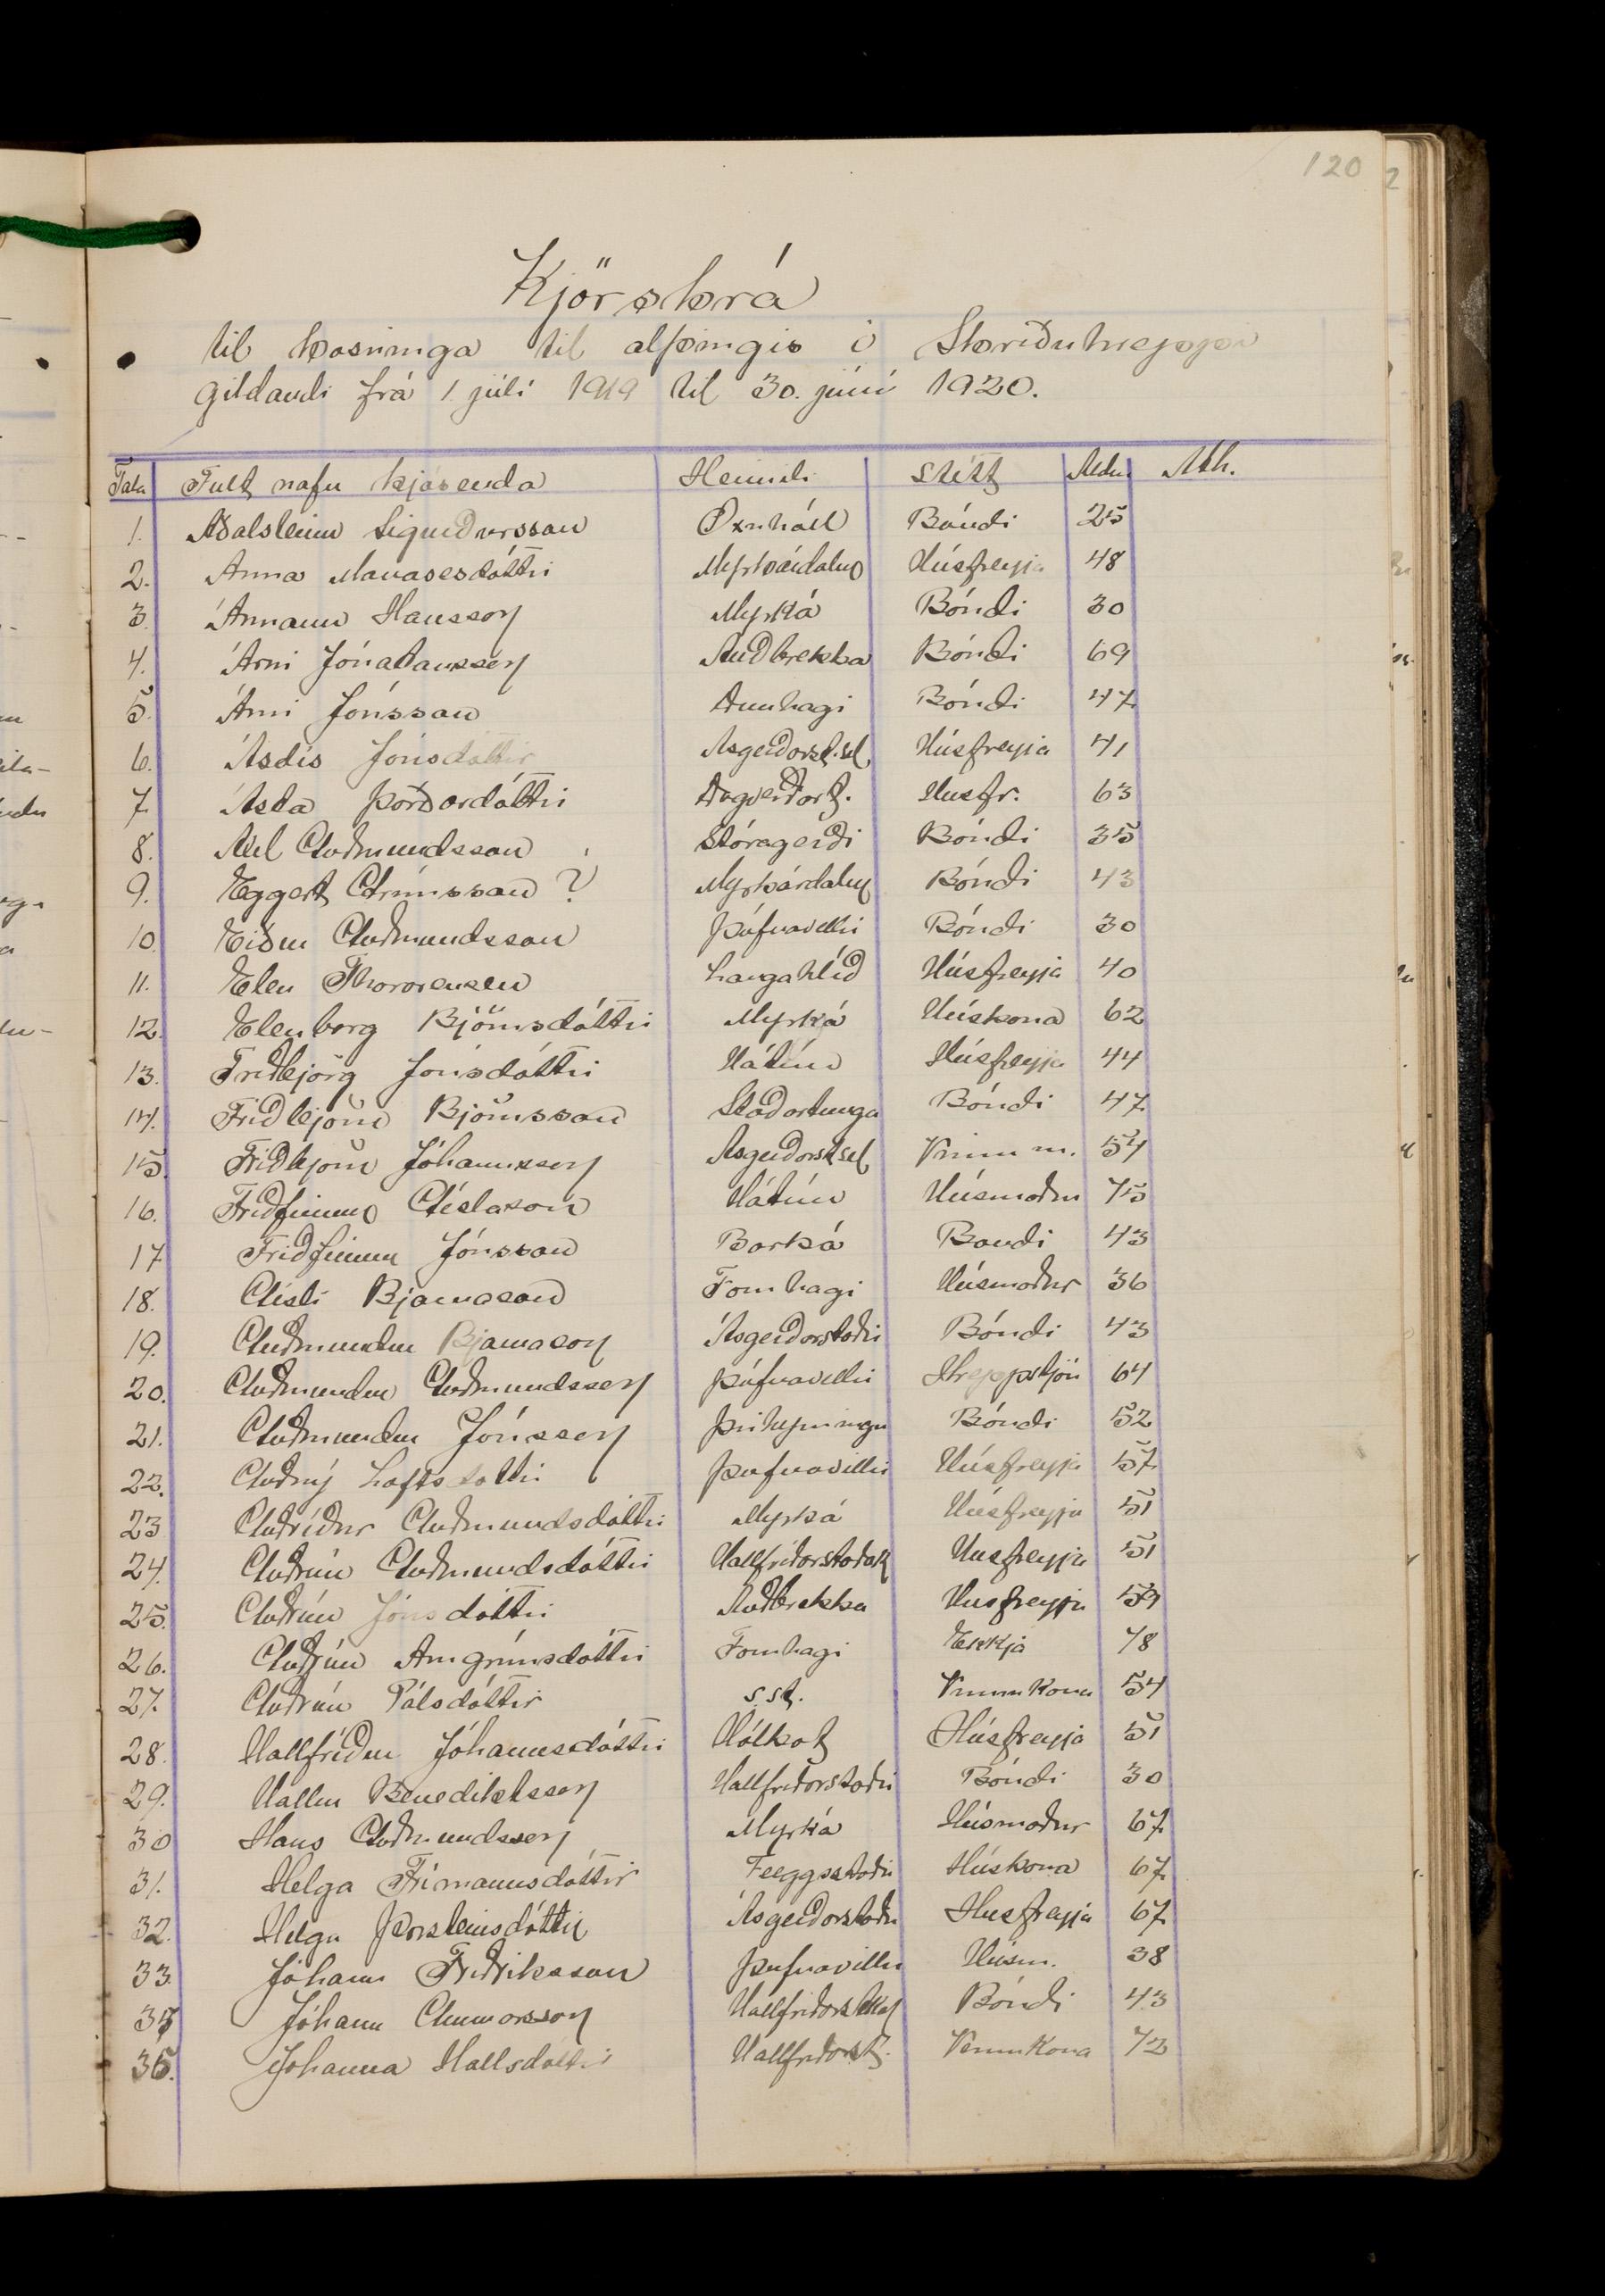 120
Kjörskrá
til kosninga til alþingis í Skriðuhreppi
gildandi frá 1. júlí 1919 til 30. júní 1920.
Tala Fult nafn kjósenda Heimili Stétt Aldur Ath.
1. Aðalsteinn Sigurðursson Öxnhóll Bóndi 25
2. Anna Manasesdóttir Myrkárdalur Húsfreyja 48
3. Ármann Hansson Myrká Bóndi 30
4. Árni Jónatansson Auðbrekka Bóndi 69
5. Árni Jónsson Arnhagi Bóndi 47
6. Ásdís Jónsdóttir Ásgerðarst.sel Húsfreyja 41
7. Ásta Þórðardóttir Húsfr. 63
8. Axel Guðmundsson Stóragerði Bóndi 35
9. Eggert Grímsson ? Myrkárdalur Bóndi 43
10. Eiður Guðmundsson Þúfnavellir Bóndi 30
11. Elen Thorarensen Langahlíð Húsfreyja 40
12. Elenborg Björnsdóttir Myrká Húskona 62
13. Friðbjörg Jónsdóttir Hátún Húsfreyja 44
14. Friðbjörn Björnsson Staðartunga Bóndi 47
15. Friðbjörn Jóhannsson Ásgerðarst.sel Vinnu m. 54
16. Friðfinnur Gíslason Hátún Húsmaður 75
17 Friðfinnur Jónsson Barká Bondi 43
18. Gísli Bjarnason Fornhagi Húsmaður 36
19. Guðmundur Bjarnason Ásgerðarstaðir Bóndi 43
20. Guðmundur Guðmundsson Þúfnavellir Hreppstjóri 64
21. Guðmundur Jónsson Þríhyrningur Bóndi 52
22. Guðný Loftsdóttir Þúfnavellir Húsfreyja 57
23 Guðríður Guðmundsdóttir Myrká Húsfreyja 51
24. Guðrún Guðmundsdóttir Hallfríðarstaðak Húsfreyja 51
25. Guðrún Jónsdóttir Auðbrekka Húsfreyja 59
26. Guðrún Arngrímsdóttir Fornhagi Ekkja 78
27. Guðrún Pálsdóttir s.st. Vinnu Kona 54
28. Hallfríður Jóhannsdóttir Hólkot Húsfreyja 51
29. Hallur Benediktsson Hallfríðarstaðir Bóndi 30
30 Hans Guðmundsson Myrká Húsmaður 67
31. Helga Frímannsdóttir Féeggsstaðir Húskona 67
32. Helga Þorsteinsdóttir Ásgerðarstaðir Húsfreyja 67
33 Jóhann Friðriksson Þúfnavellir Húsm. 38
34 Jóhann Gunnarsson Hallfríðarst.kot Bóndi 43
35. Jóhanna Hallsdóttir Hallfríðarst. Vinnu Kona 72